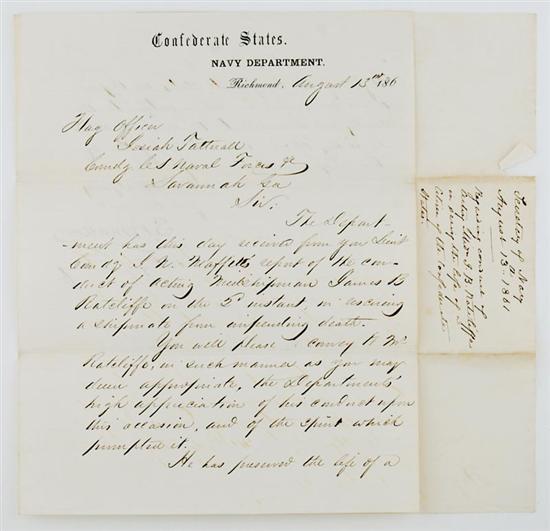 Confederate States.
NAVY DEPARTMENT.
Richmond, August 13th 186
Flag Officer
Josiah Tattnall
Comdg C S Naval Forces &c
Savannah Ga
Sir:
The Depart-
ment has this day received from you Lieut
Comdg J. N. Maffitt's report of the con-
duct of Acting Midshipman James B
Ratcliffe on the 2d instant, in rescuing
a shipmate from impending death.
You will please convey to Mr
Ratcliffe, in such manner as you may
deem appropriate, the Department's
high appreciation of his conduct upon
this occasion, and of the spirit which
prompted it.
He has preserved the life of a
Secretary of Navy
August 13. 1861
conduct of
J. B. Ratcliffe
in saving the life of a
of the Confederate
States